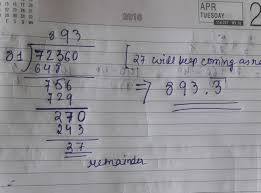 2016
APR
TUESDAY
2
893
81)72360
648
756
729
270
243
27
remainder
[27 will keep coming as re
⇒ 893.3